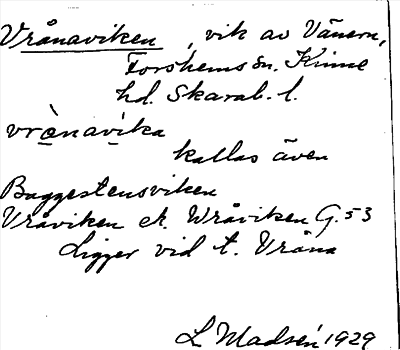 Vrånaviken, vik av Vänern,
Forshems sn. Kinne
hd. Skarab. l.
vrànavika
kallas även
Baggestensviken
Vråviken ek. Wråviken G. 53
Ligger vid t. Vråna
L Madsén 1929